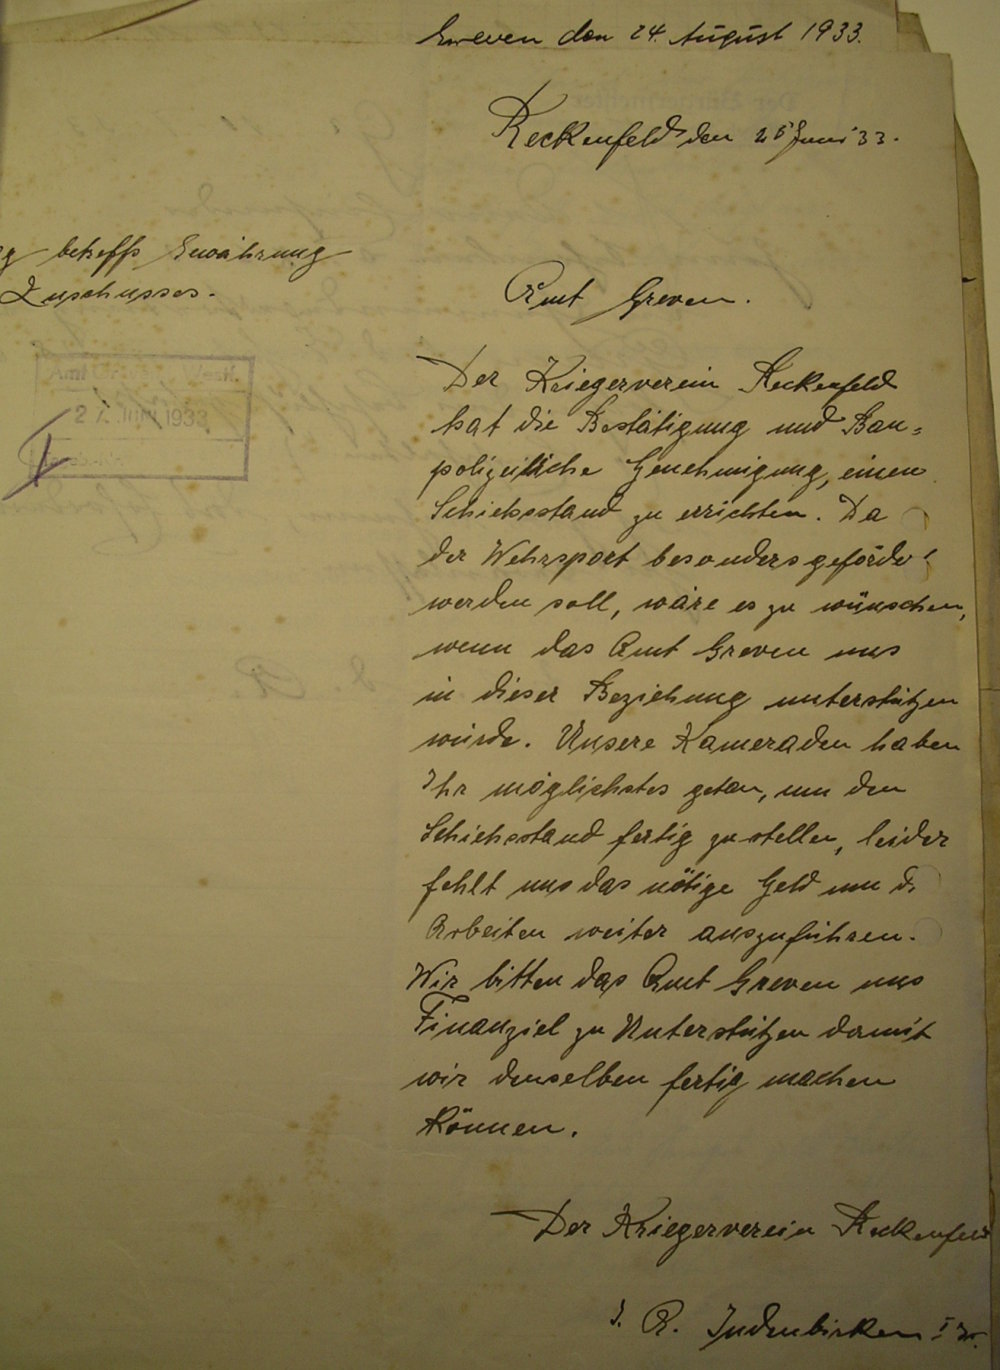 Greven den 24. August 1933.
Reckenfeld den 25 Juni 33.
betreffs Gewährung
Zuschusses.
Amt Greven.
Amt Greven Westf.
27. Juni 1933
Der Kriegerverein Reckenfeld
hat die Bestätigung und Bau-
polizeiliche Genehmigung, einen
Schiehsstand zu errichten. Da
der Wehrsport besonders geförde
werden soll, wäre es zu wünschen,
wenn das Amt Greven uns
in dieser Beziehung unterstützen
würde. Unsere Kameraden haben
Ihr möglichstes getan, um den
Schiehsstand fertig zu stellen, leider
fehlt uns das nötige Geld um d.
Arbeiten weiter auszuführen.
Wir bitten das Amt Greven uns
Finanziel zu Unterstützen damit
wir denselben fertig machen
können.
Der Kriegerverein Reckenfeld
I. A. Indenbirken